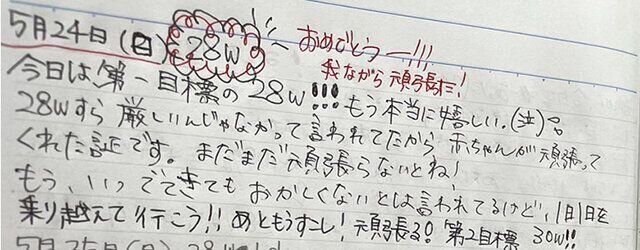 5月24日(日) 28w おめでとうー!!!
我ながら頑張た!
今日は第一目標の28w!!! もう本当に嬉しい。(泣)
28wすら厳しいんじゃなかって言われてたから 赤ちゃんが頑張って
くれた証です。まだまだ頑張らないとね!
もう、いつ でてきても おかしくないとは言われてるけど、1日1日を
乗り越えて行こう!! あともうすこし! 頑張る! 第2目標 30w!!
5月25日(月) 28w